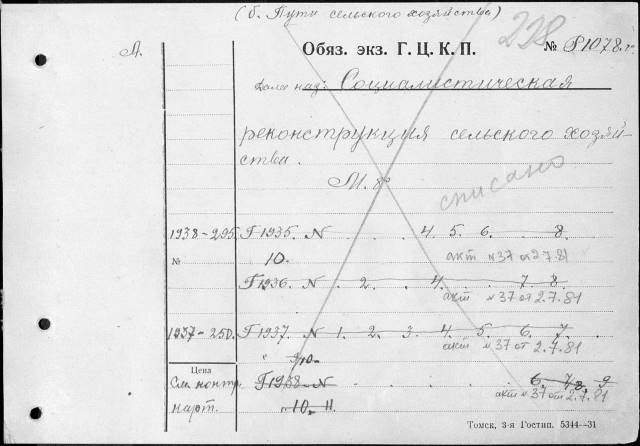 (б. Пути сельского хозяйства)
Л. Обяз. экз. Г. Ц. К. П. 228 № Р1078.
Социалистическая
реконструкция сельского хозяй-
ства.
М.
списано
1938-295. Г 1935. N . . . 4. 5. 6. . 8.
№ 10. акт N37 от 2.7.81
Г 1936. N . 2. . 4. . . 7. 8.
акт N37 от 2.7.81
1937-250. Г 1937. N 1. 2. 3. 4. 5. 6. 7.
" 9/10- акт N37 от 2.7.81
Цена
См. контр. Г 1938 - N . . . . . 6. 7/8. 9
карт. " 10. 11. акт N37 от 2.7.81
Томск, 3-я Гостип. 5344—31